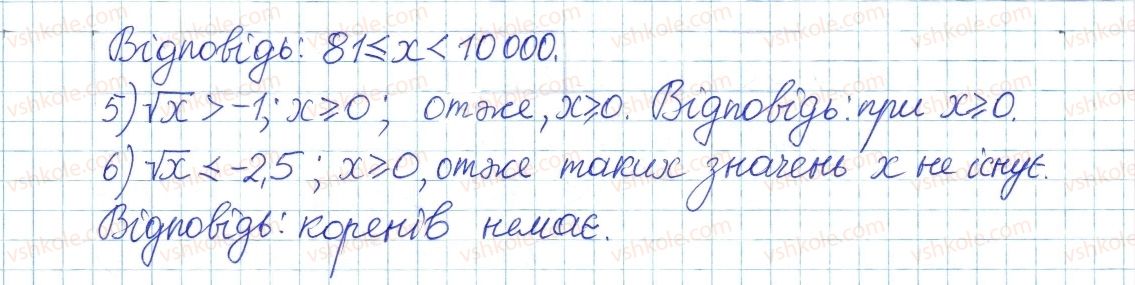 Відповідь: 81≤x<10000.
5) √x > -1; x≥0; отже, x≥0. Відповідь: при x≥0.
6) √x ≤ -2,5; x≥0, отже таких значень x не існує.
Відповідь: коренів немає.